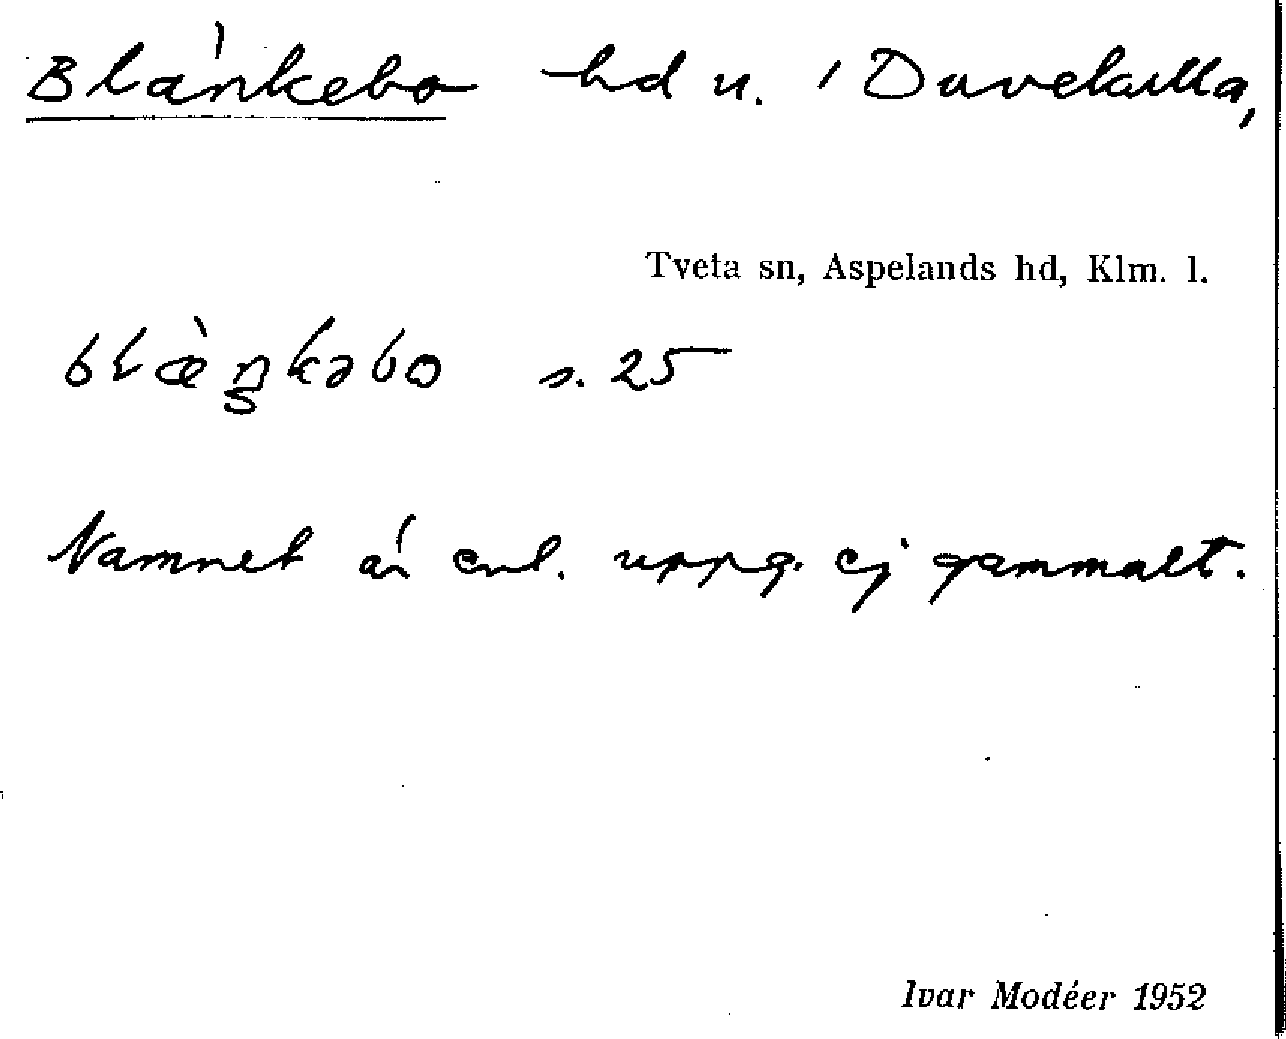 Blänkebo hd u. i Duvekulla,
Tveta sn, Aspelands hd, Klm. l.
blæ̀ŋkəbo s. 25
Namnet är enl. uppg. ej gammalt.
Ivar Modéer 1952